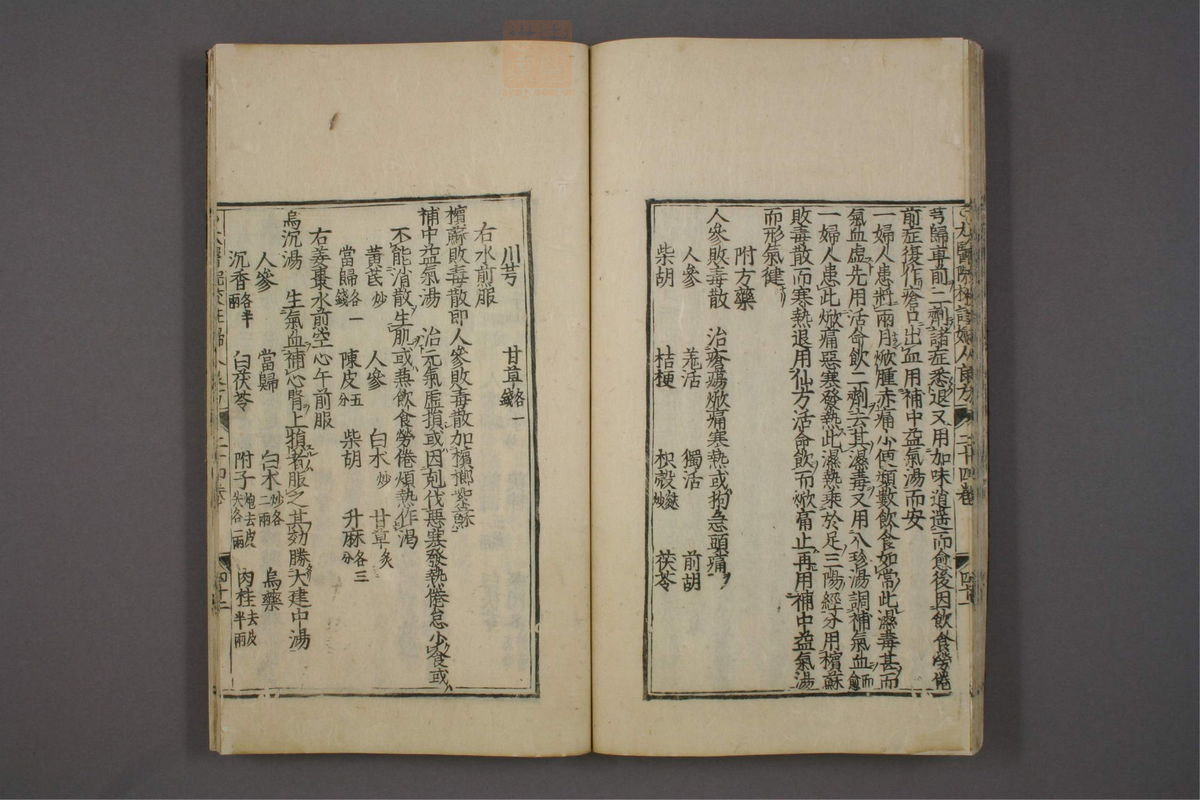 芎歸專前二劑諸症悉退又用加味逍遙而愈後因飲食勞倦
前症復作瘡口出血用補中益氣湯而安
一婦人患對兩月焮腫赤痛小便頻數飲食如常此濕毒甚而
氣血虛先用活命飲二劑去其濕毒又用八珍湯調補氣血而愈
一婦人患此焮痛惡寒發熱此濕熱乘於足三陽經分用檳蘇
敗毒散而寒熱退用仙方活命飲而焮痛止再用補中益氣湯
而形氣健
附方藥
人參敗毒散 治瘡瘍焮痛寒熱或拘急頭痛
人參 羗活 獨活 前胡
柴胡 桔梗 枳殼麩炒 茯苓
川芎 甘草各一錢
右水煎服
檳蘇敗毒散即人參敗毒散加檳榔紫蘇
補中益氣湯 治元氣虛損或因剋伐惡寒發熱倦怠少食或
不能消散生肌或兼飲食勞倦煩熱作渴
黃芪炒 人參 白朮炒 甘草炙
當歸各一錢 陳皮五分 柴胡 升麻各三分
右姜棗水煎空心午前服
烏沉湯 生氣血補心腎上損者服之其効勝大建中湯
人參 當歸 白朮炒各二兩 烏藥
沉香各半兩 白茯苓 附子炮去皮尖各一兩 肉桂去皮半兩
二十四卷 四十二